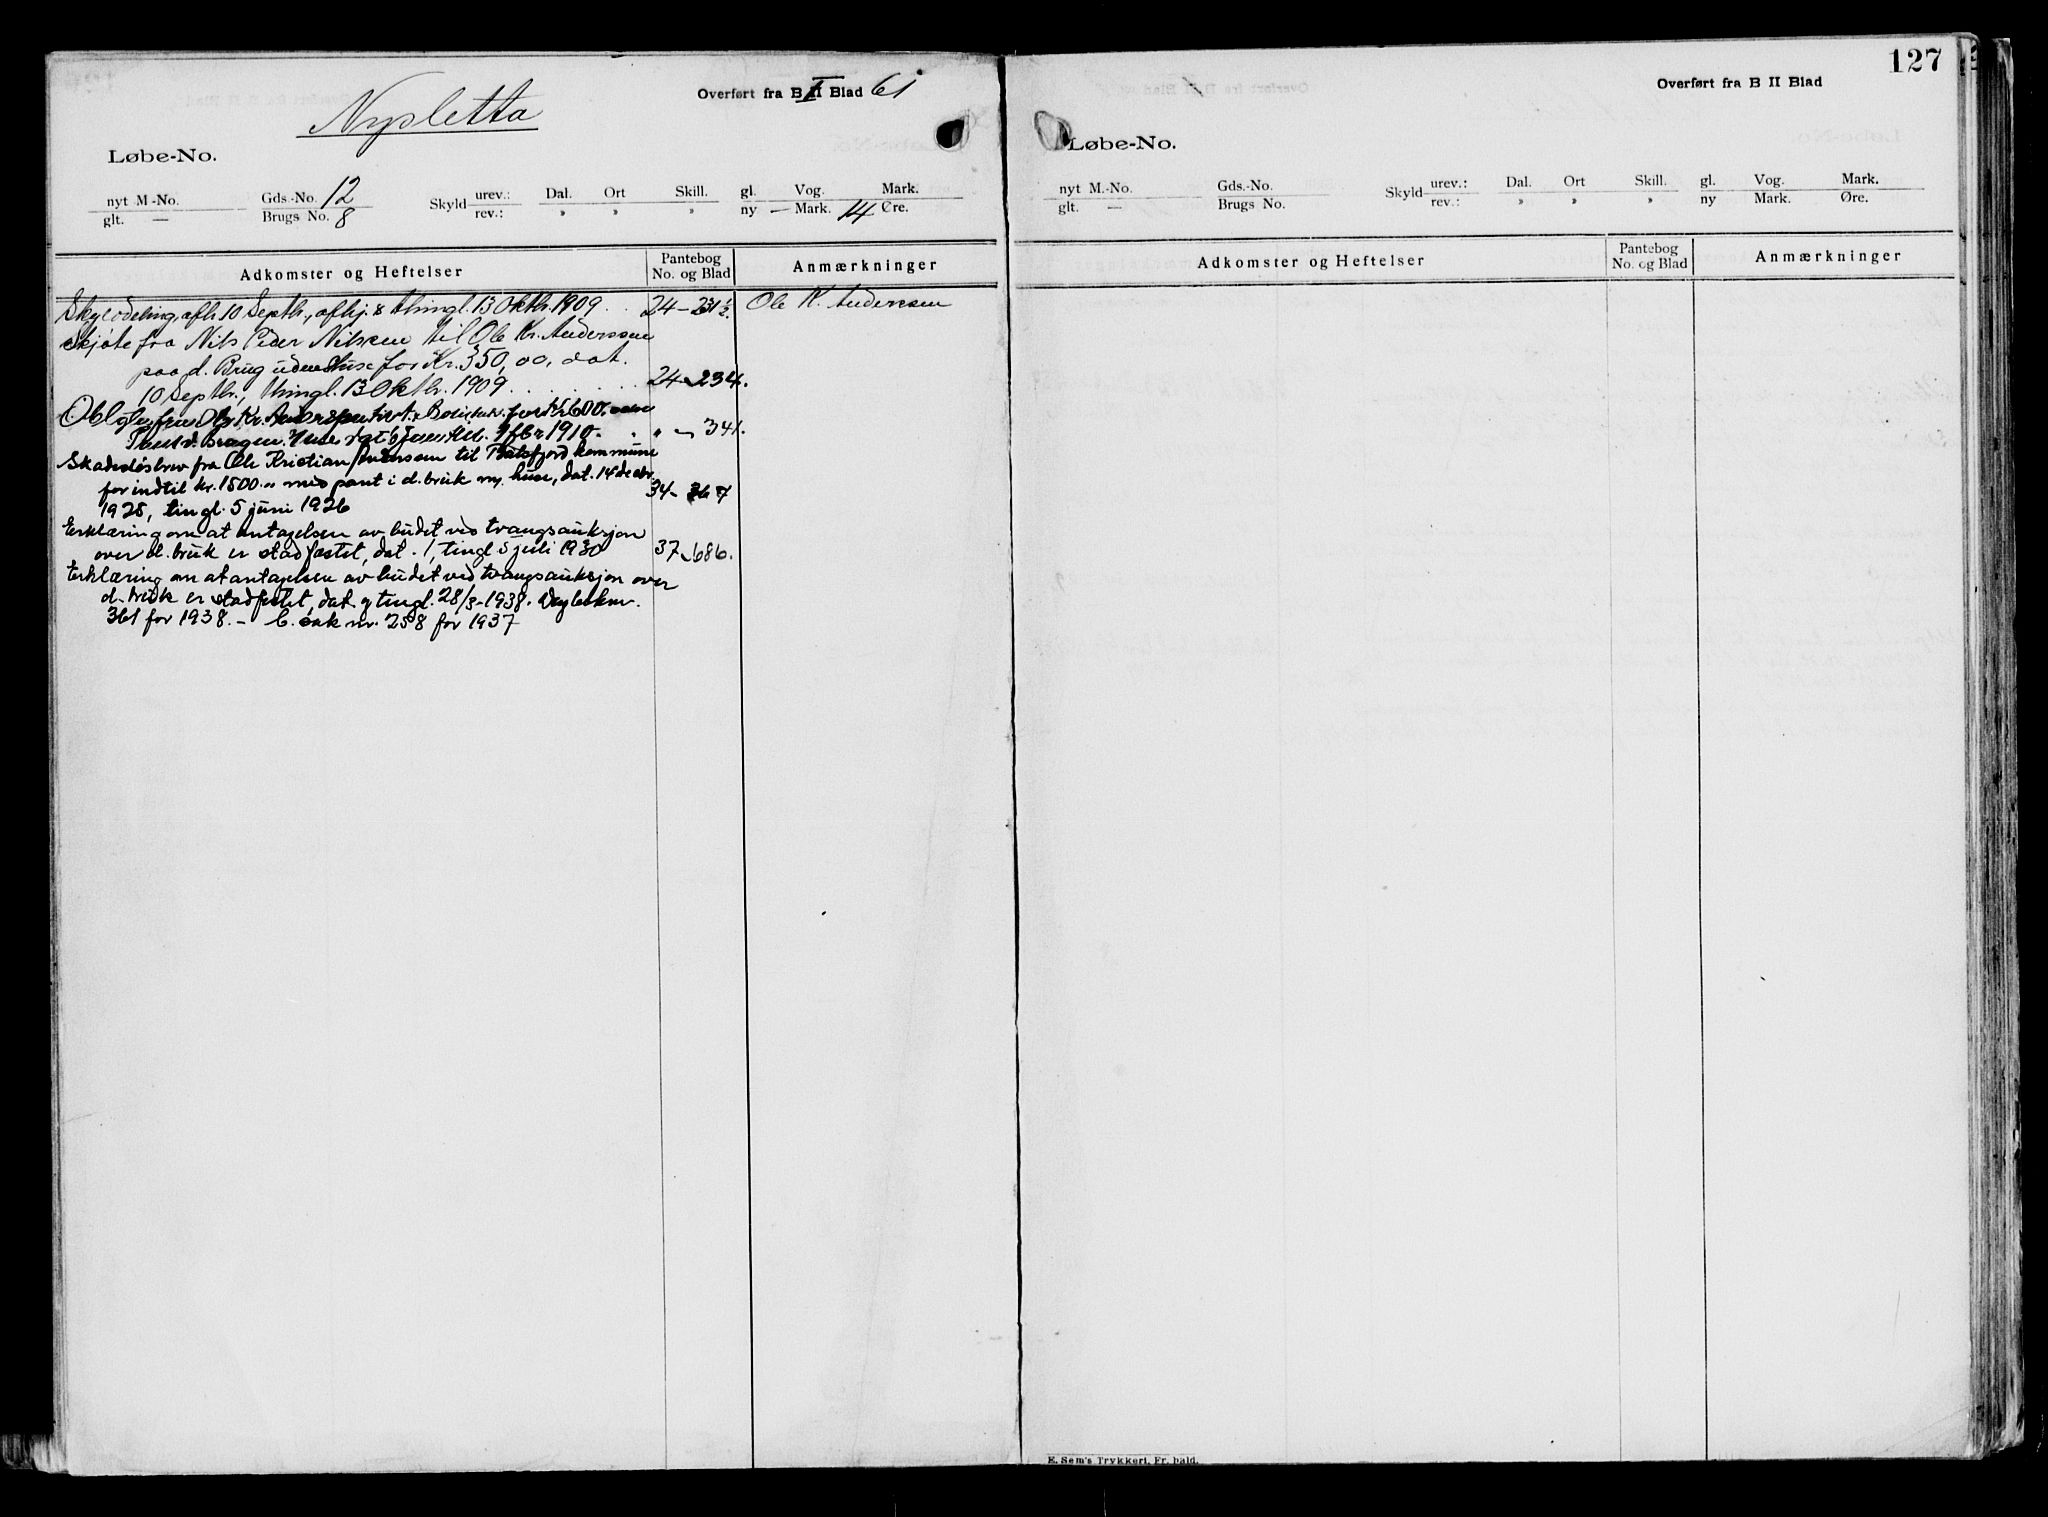 Nysletta
Overført fra B II Blad 61
Løbe-No.
nyt M-No. Gds.-No. 12 Skyld urev.: Dal. Ort Skill. gl. Vog. Mark.
glt. — Brugs No. 8 rev.: " " " ny — Mark. 14 Øre.
Adkomster og Heftelser Pantebog No. og Blad Anmærkninger
Skylddeling, afh. 10 Septb., afhj. & thingl. 13 Oktb. 1909 . . 24 – 231 ½. Ole K. Anderssen
Skjøte fra Nils Peder Nilsen til Ole Kr. Anderssen
paa d. Brug uden Huse for Kr. 350,00, dat.
10 Septbr., thingl. 13 Oktbr. 1909 . . . . . . 24 – 234.
Obl. fra Ole Kr. Anderssen til for Kr 600.
Pant d. Brug m. Huse, dat 6 thgl. 9 fbr 1910. . " – 341.
Skadesløsbrev fra Ole Kristian Anderssen til Båtsfjord kommune
for indtil kr. 1500.00 med pant i d. bruk m. huse, dat. 14 decbr. 34 – 367
1925, tingl. 5 juni 1926
Erklæring om at antagelsen av budet ved tvangsauksjon
over d. bruk er stadfæstet, dat. 1, tingl 5 juli 1930 37 – 686.
Erklæring om at antagelsen av budet ved tvangsauksjon over
d. bruk er stadfestet, dat. og tingl. 28/3-1938. Dagboknr.
361 for 1938. – C. sak nr. 258 for 1937
127
Overført fra B II Blad
Løbe-No.
nyt M.-No. Gds.-No. Skyld urev.: Dal. Ort Skill. gl. Vog. Mark.
glt. — Brugs No. rev.: " " " ny Mark. Øre.
Adkomster og Heftelser Pantebog No. og Blad Anmærkninger
E. Sem's Trykkeri, Fr. hald.